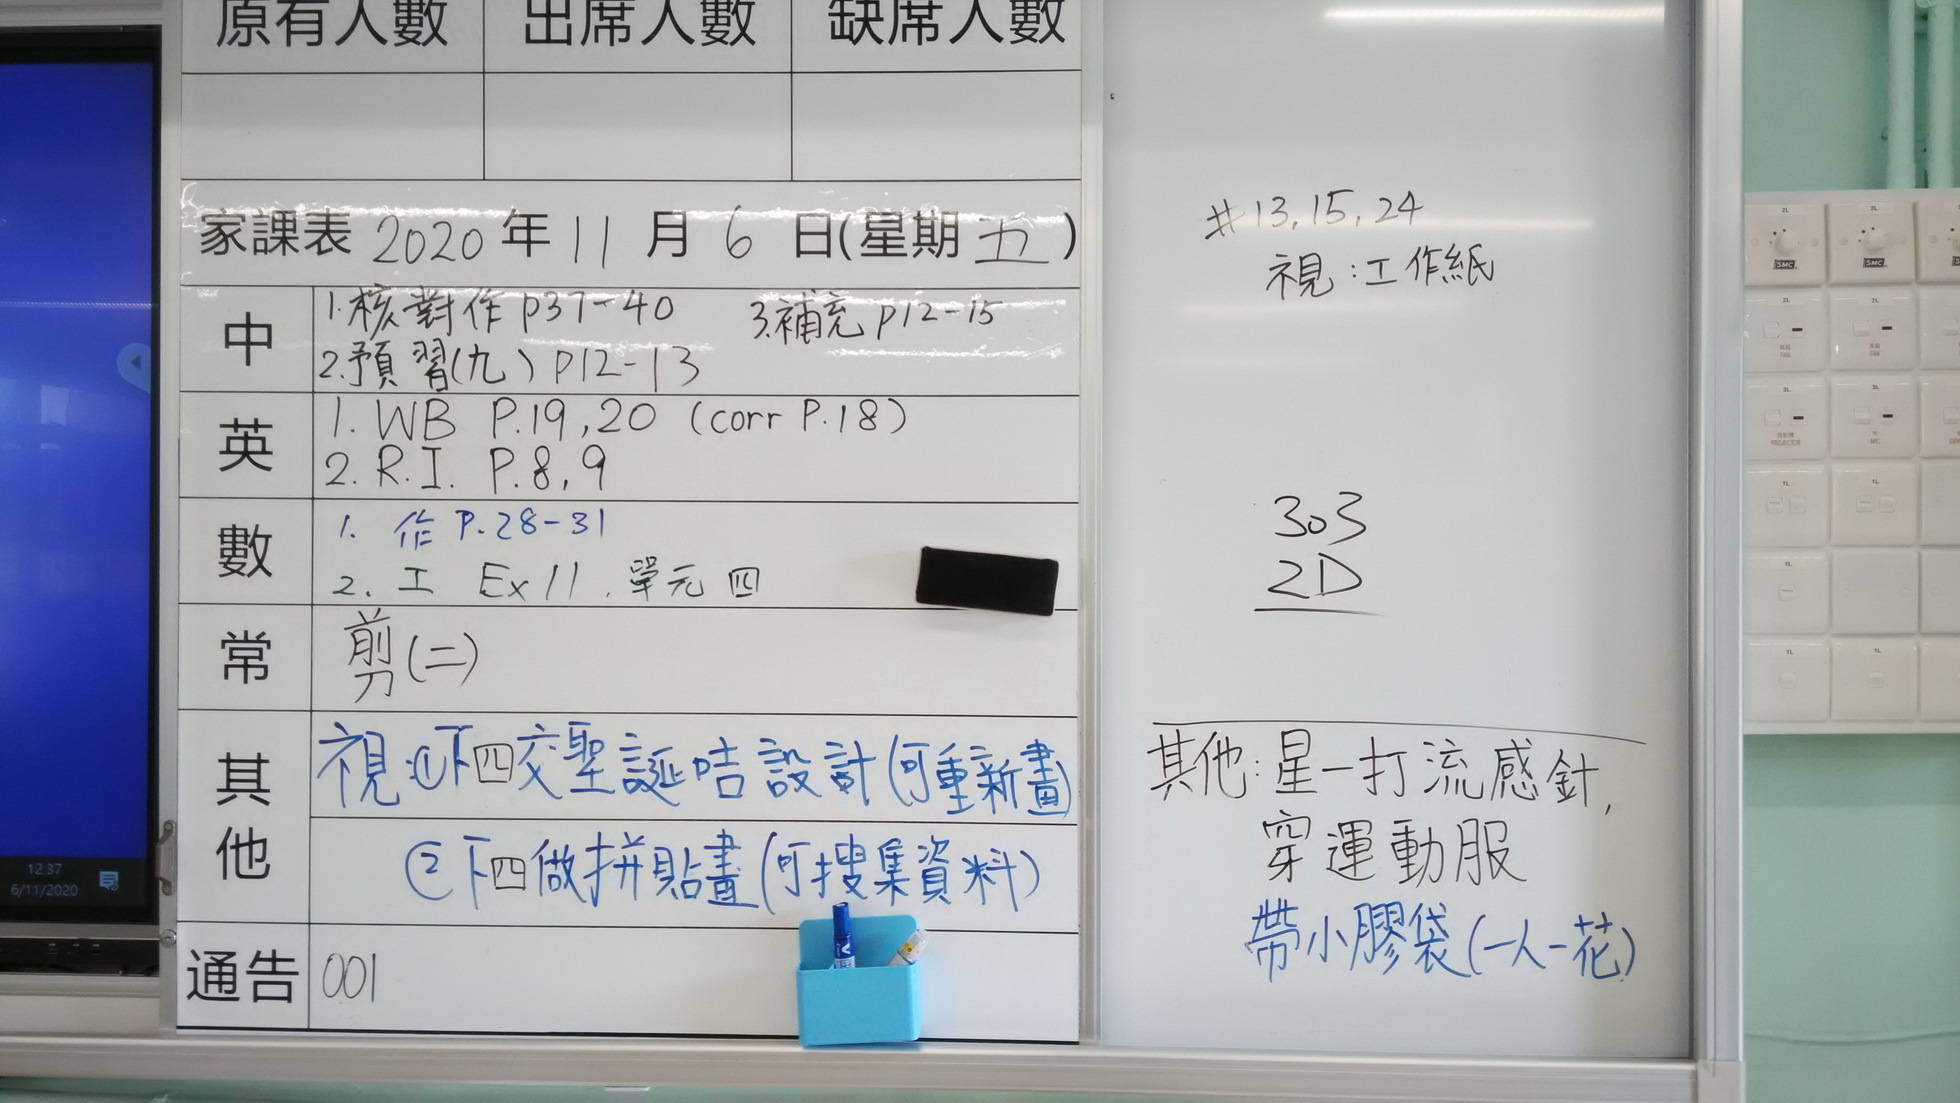 原有人數 出席人數 缺席人數
家課表 2020 年 11 月 6 日(星期 五)
中
1.核對作 p37-40 3.補充 p12-15
2.預習(九) p12-13
英
1. WB P.19,20 (corr P.18)
2. R.I. P.8,9
數
1. 作 P.28-31
2. 工 Ex 11 . 單元四
常
剪(二)
其他
視:①下四交聖誕咭設計(可重新畫)
②下四做拼貼畫(可搜集資料)
通告 001
#13,15,24
視:工作紙
303
2D
其他:星一打流感針,
穿運動服
帶小膠袋(一人一花)
12:37
6/11/2020
SMC
SMC
2L
2L
2L
2L
風扇
FAN
風扇
FAN
3L
3L
投影機
PROJECTOR
MIC
1L
1L
1L
1L
1L